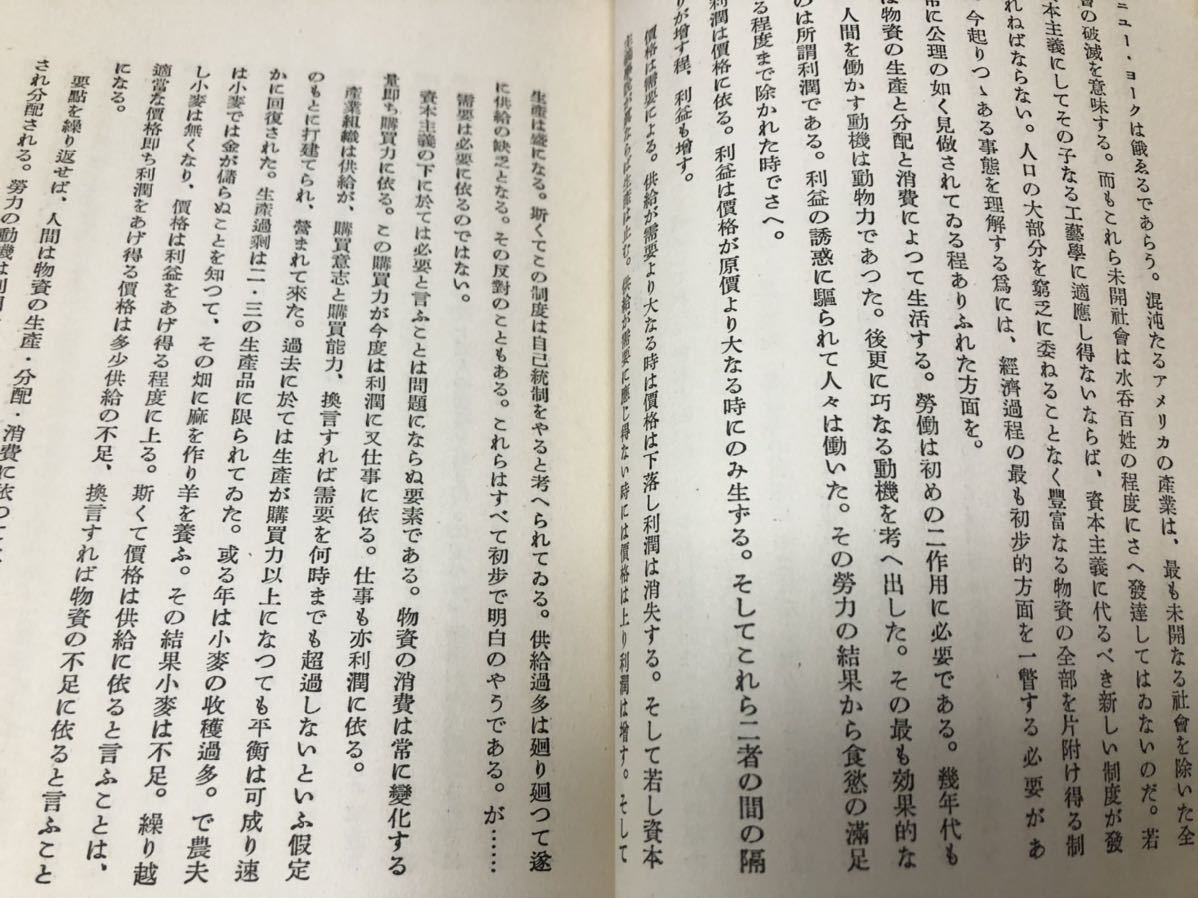 ニュー・ヨークは餓ゑるであらう。混沌たるアメリカの產業は、最も未開なる社會を除いた全
の破滅を意味する。而もこれら未開社會は水呑百姓の程度にさへ發達してはゐないのだ。若
本主義にしてその子なる工藝學に適應し得ないならば、資本主義に代るべき新しい制度が發
れねばならない。人口の大部分を窮乏に委ねることなく豐富なる物資の全部を片附け得る制
今起りつゝある事態を理解する爲には、經濟過程の最も初步的方面を一瞥する必要があ
常に公理の如く見做されてゐる程ありふれた方面を。
は物資の生產と分配と消費によつて生活する。勞働は初めの二作用に必要である。幾年代も
人間を働かす動機は動物力であつた。後更に巧なる動機を考へ出した。その最も効果的な
のは所謂利潤である。利益の誘惑に驅られて人々は働いた。その勞力の結果から食慾の滿足
る程度まで除かれた時でさへ。
利潤は價格に依る。利益は價格が原價より大なる時にのみ生ずる。そしてこれら二者の間の隔
りが增す程、利益も增す。
價格は需要による。供給が需要より大なる時は價格は下落し利潤は消失する。そして若し資本
ならば生產は止む。供給が需要に應じ得ない時には價格は上り利潤は增す。そして
生產は盛になる。斯くてこの制度は自己統制をやると考へられてゐる。供給過多は廻り廻つて遂
に供給の缺乏となる。その反對のこともある。これらはすべて初步で明白のやうである。が……
需要は必要に依るのではない。
資本主義の下に於ては必要と言ふことは問題にならぬ要素である。物資の消費は常に變化する
量即ち購買力に依る。この購買力が今度は利潤に又仕事に依る。仕事も亦利潤に依る。
產業組織は供給が、購買意志と購買能力、換言すれば需要を何時までも超過しないといふ假定
のもとに打建てられ、營まれて來た。過去に於ては生產が購買力以上になつても平衡は可成り速
かに回復された。生產過剩は二・三の生產品に限られてゐた。或る年は小麥の收穫過多。で農夫
は小麥では金が儲らぬことを知つて、その畑に麻を作り羊を養ふ。その結果小麥は不足。繰り越
し小麥は無くなり、價格は利益をあげ得る程度に上る。斯くて價格は供給に依ると言ふことは、
適當な價格即ち利潤をあげ得る價格は多少供給の不足、換言すれば物資の不足に依ると言ふこと
になる。
要點を繰り返せば、人間は物資の生產・分配・消費に依つて
され分配される。勞力の動機は利